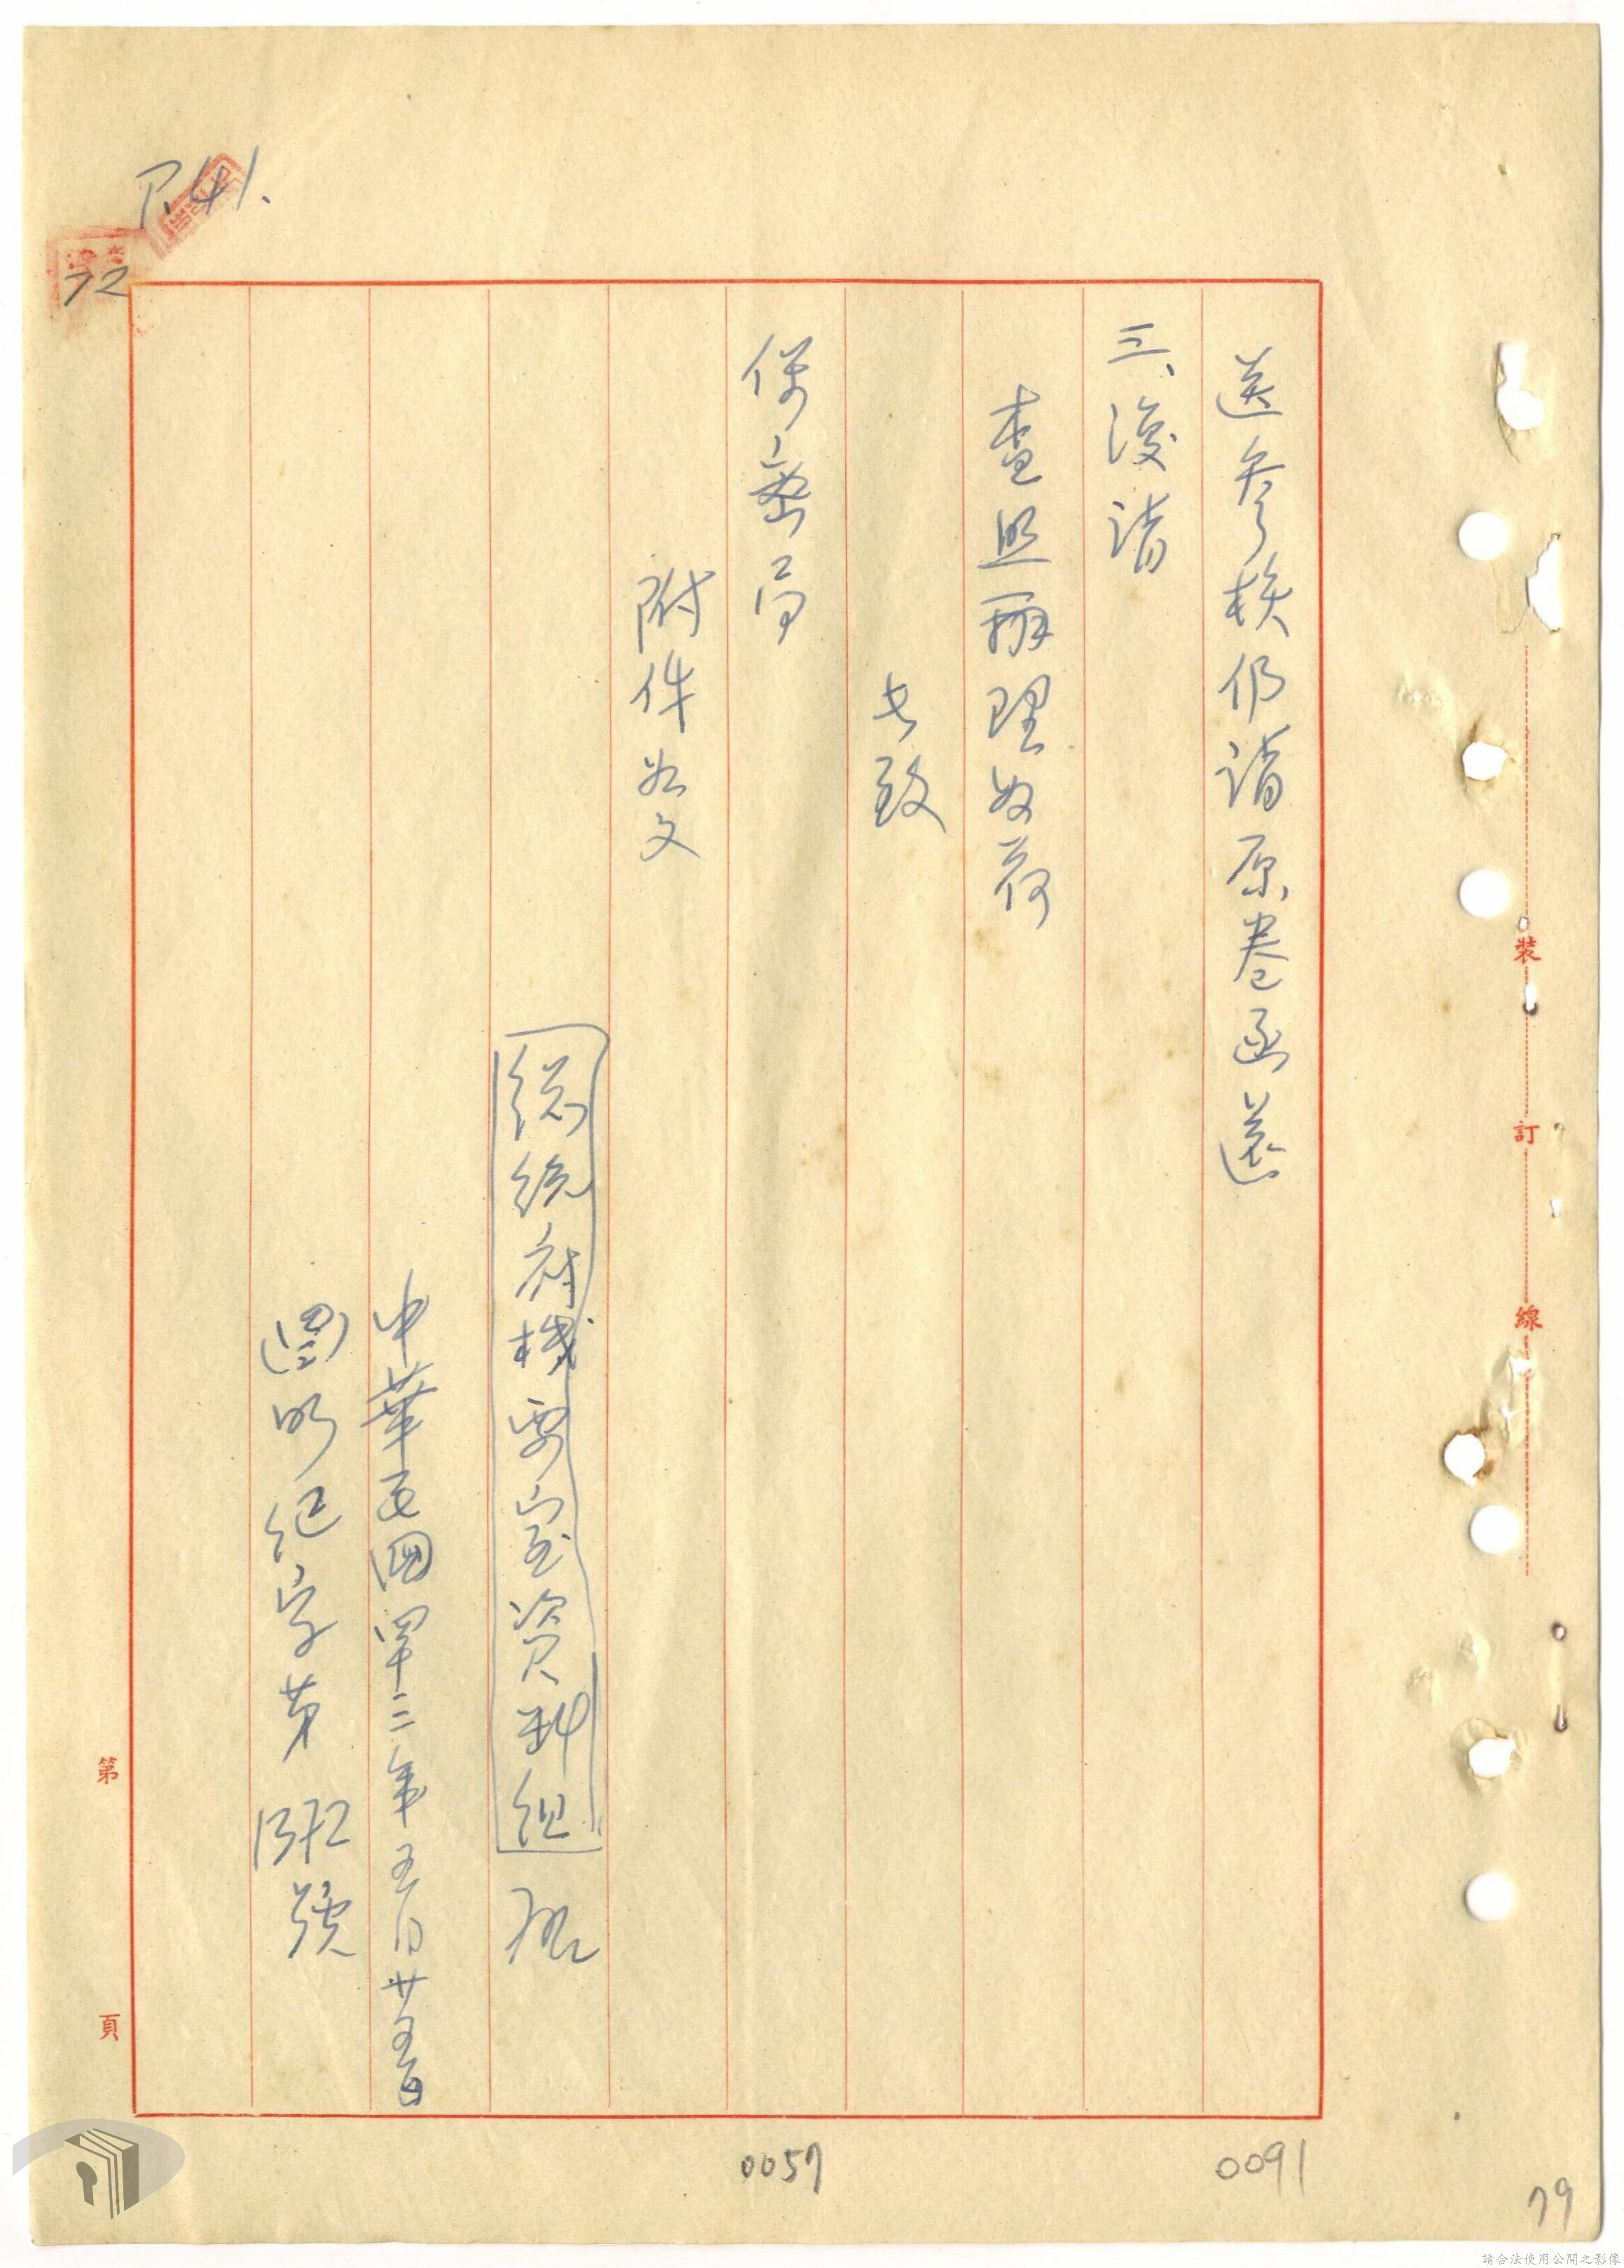 送參核仍請原卷函還
三、復請
查照辦理為荷
此致
保密局
附件如文
總統府機要室資料組啟
中華民國四十二年五月廿五日
(四二)明紀字第1372號
P.41.
72
裝
訂
線
第
頁
0057
0091
79
請合法使用公開之影像